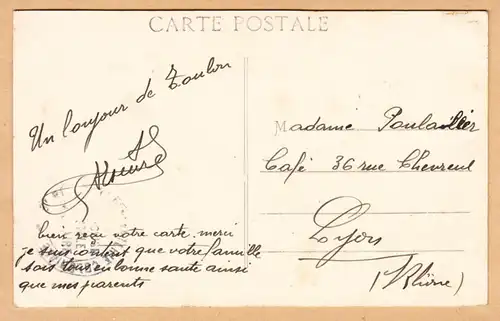 CARTE POSTALE
Un bonjour de Toulon
bien reçu votre carte merci
je suis content que votre famille
sois tous en bonne sante ainsi
que mes parents
Madame Poulailler
Café 36 rue Chevreul
Lyon
(Rhône)